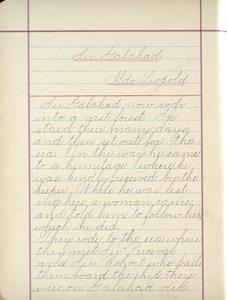 Sir Galahad
Aldo Leopold
Sir Galahad now rode
into a vast forest. He
staid there many days
and then set out for the
sea. On the way he came
to a hermitage where he
was kindly received by the
keeper. While he was rest
ing here, a woman came
and told him to follow her
which he did.
They rode to the sea where
they met Sir Percival
and Sir Bohort who bade
them board the ship they
were on Galahad did